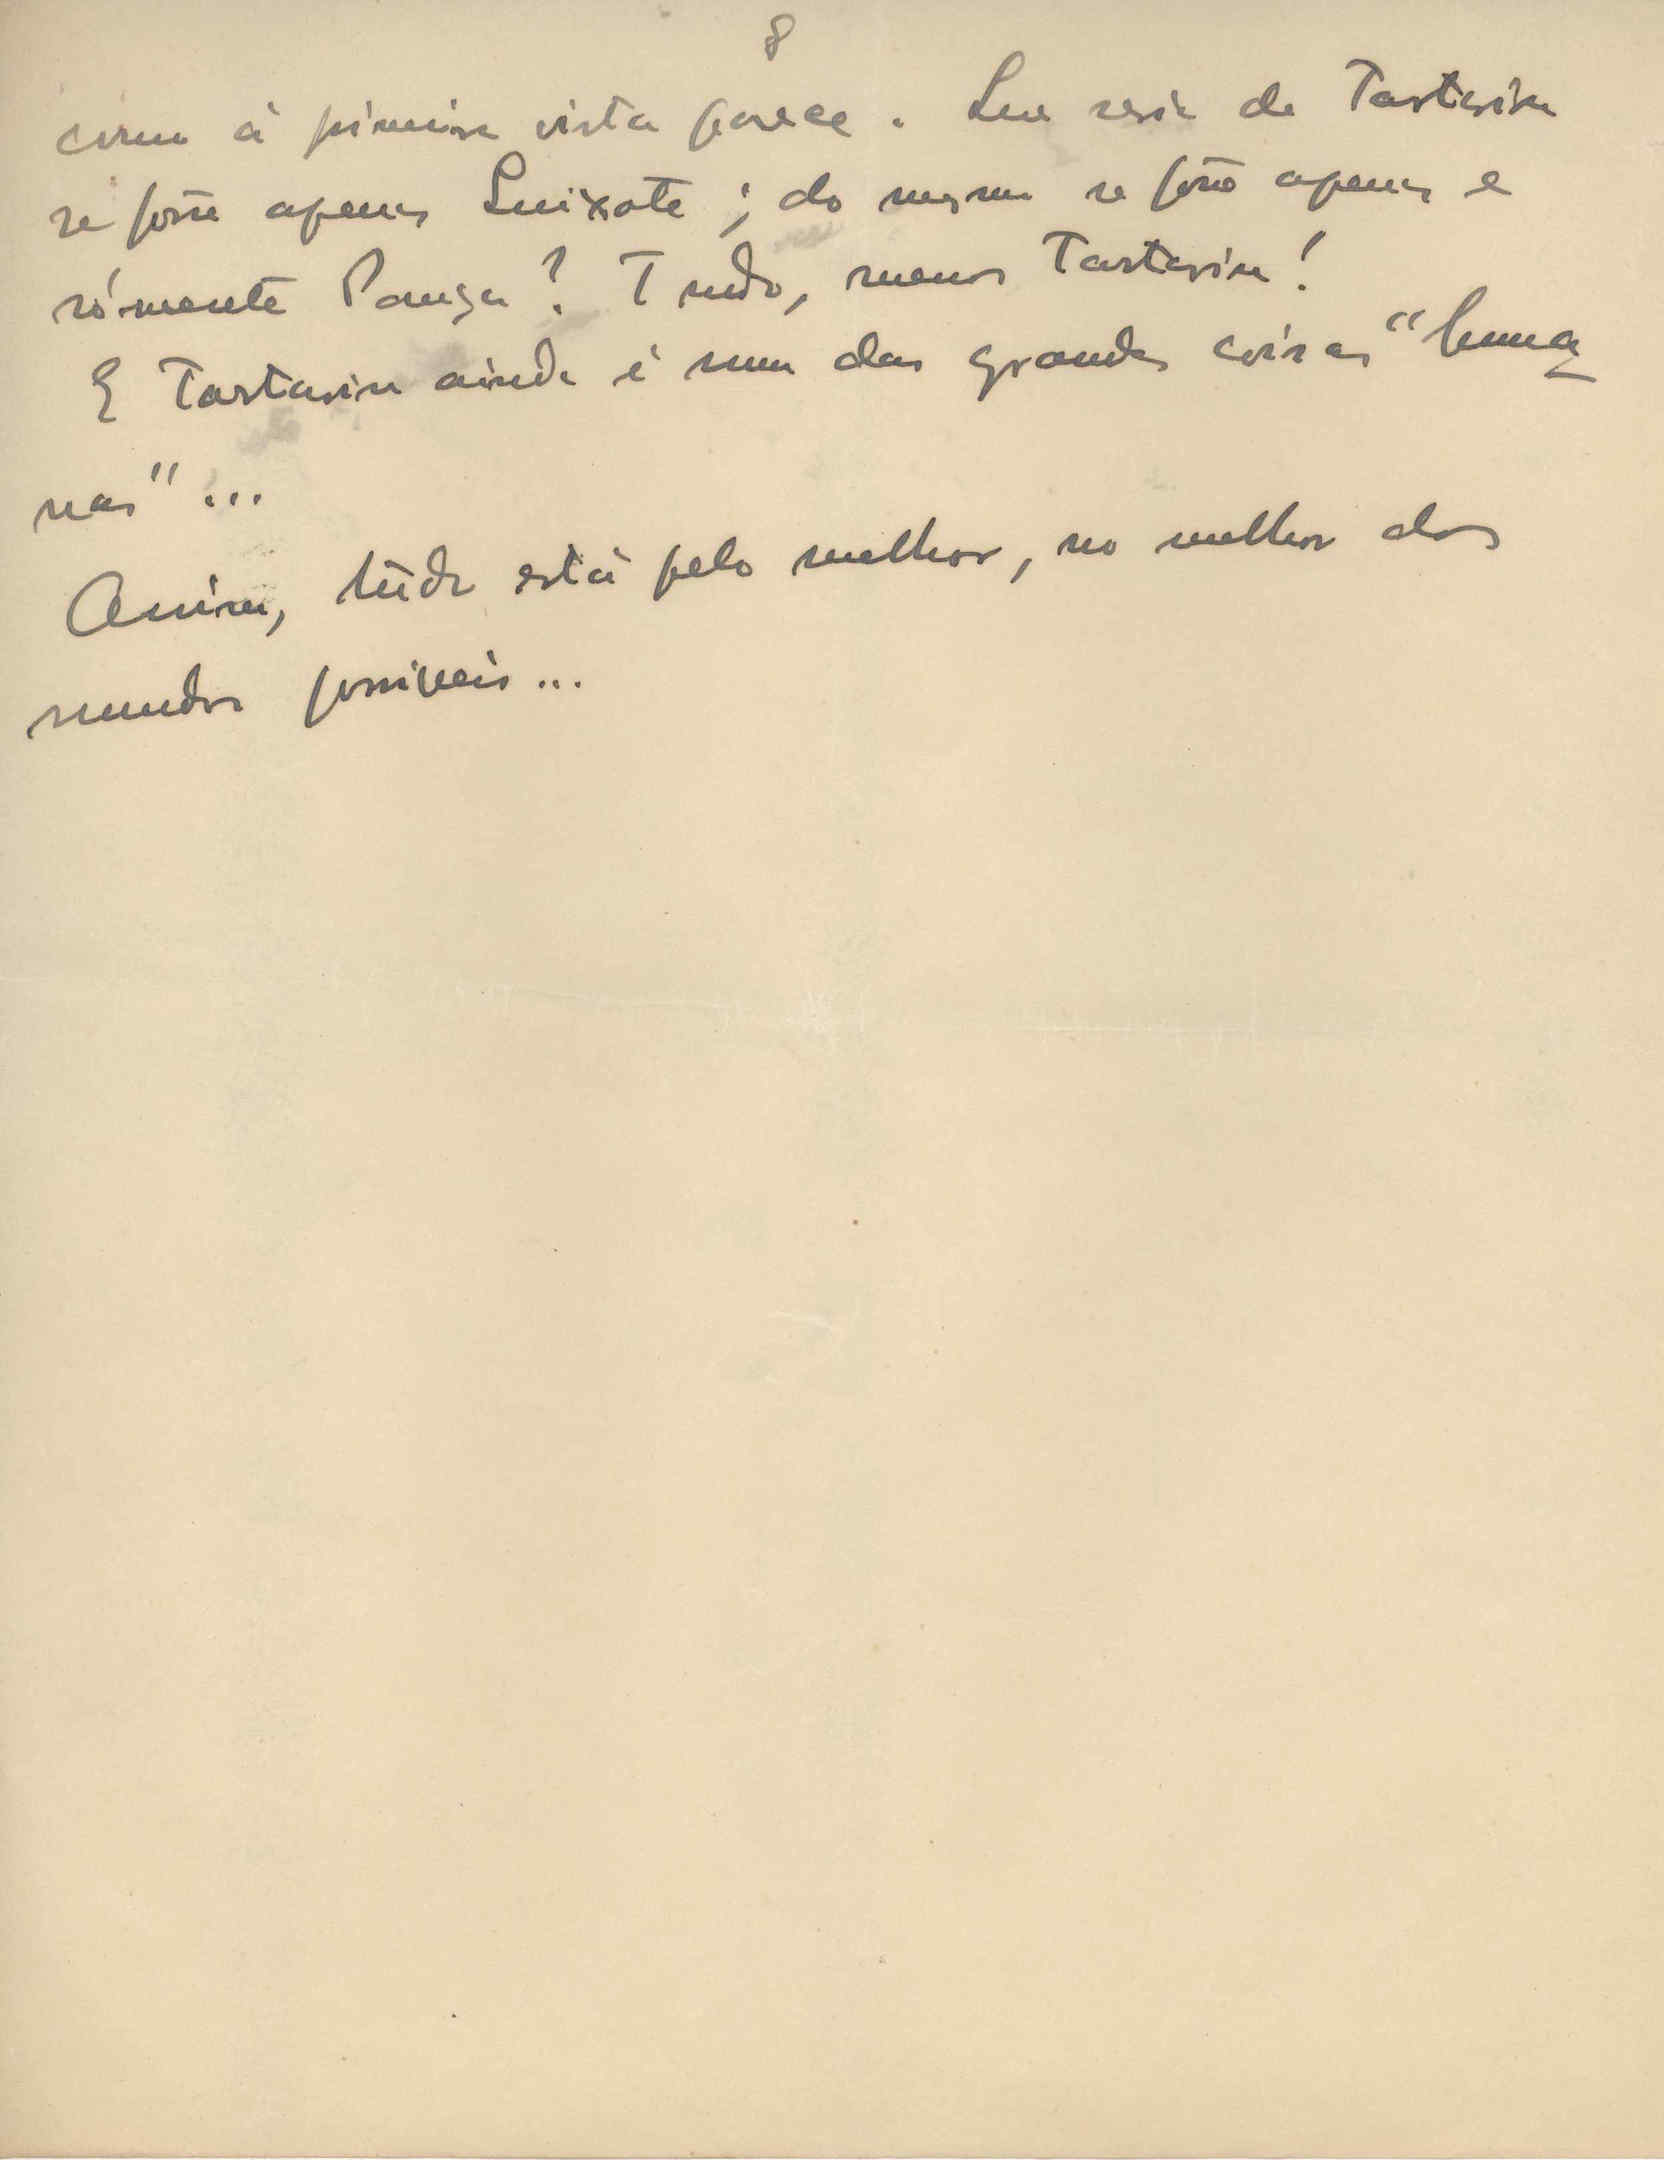 8
como à primeira vista parece. Que seria de Tartarin
se fôsse apenas Quixote; do mesmo se fôsse apenas e
sòmente Pança? Tudo, menos Tartarin!
E Tartarin ainda é uma das grandes coisas "huma
nas"...
Assim, tudo está pelo melhor, no melhor dos
mundos possíveis...